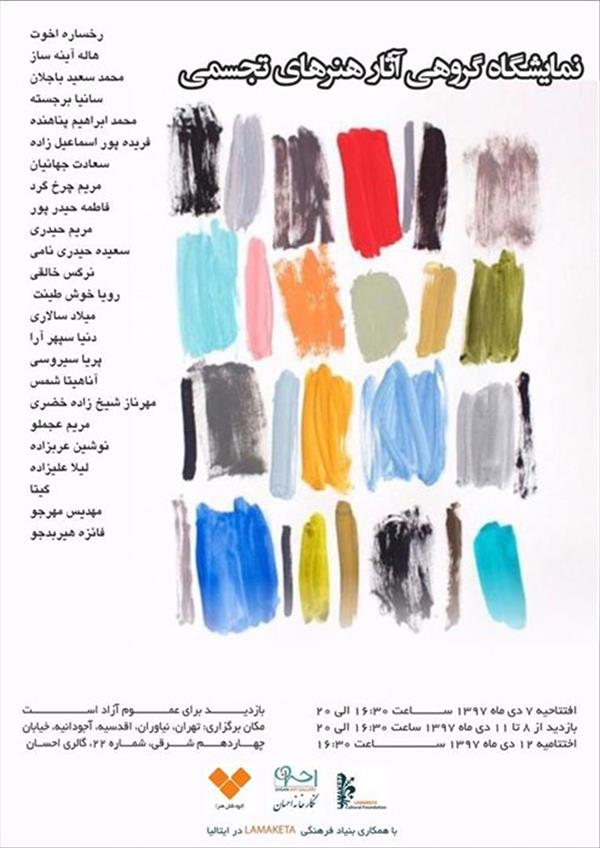 نمایشگاه گروهی آثار هنرهای تجسمی
رخساره اخوت
هاله آینه ساز
محمد سعید باجلان
سانیا برجسته
محمد ابراهیم پناهنده
فریده پور اسماعیل زاده
سعادت جهانیان
مریم چرخ گرد
فاطمه حیدر پور
مریم حیدری
سعیده حیدری نامی
نرگس خالقی
رویا خوش طینت
میلاد سالاری
دنیا سپهر آرا
پریا سیروسی
آناهیتا شمس
مهرناز شیخ زاده خضری
مریم عجملو
نوشین عربزاده
لیلا علیزاده
گیتا
مهدیس مهرجو
فائزه هیربدجو
افتتاحیه ۷ دی ماه ۱۳۹۷ ســـاعت ۱۶:۳۰ الی ۲۰
بازدید از ۸ تا ۱۱ دی ماه ۱۳۹۷ ساعت ۱۶:۳۰ الی ۲۰
اختتامیه ۱۲ دی ماه ۱۳۹۷ ســـــاعت ۱۶:۳۰
بازدید برای عمــوم آزاد اســت
مکان برگزاری: تهران، نیاوران، اقدسیه، آجودانیه، خیابان
چهاردهم شرقی، شماره ۲۲، گالری احسان
احسان
EHSAN ART GALLERY
نگارخانه احسان
LAMAKETA
LAMAKETA
Cultural Foundation
با همکاری بنیاد فرهنگی LAMAKETA در ایتالیا